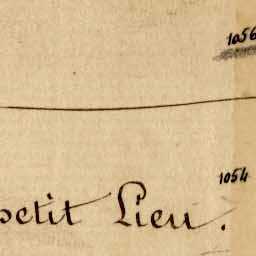 1056
1054
petit Lieu.